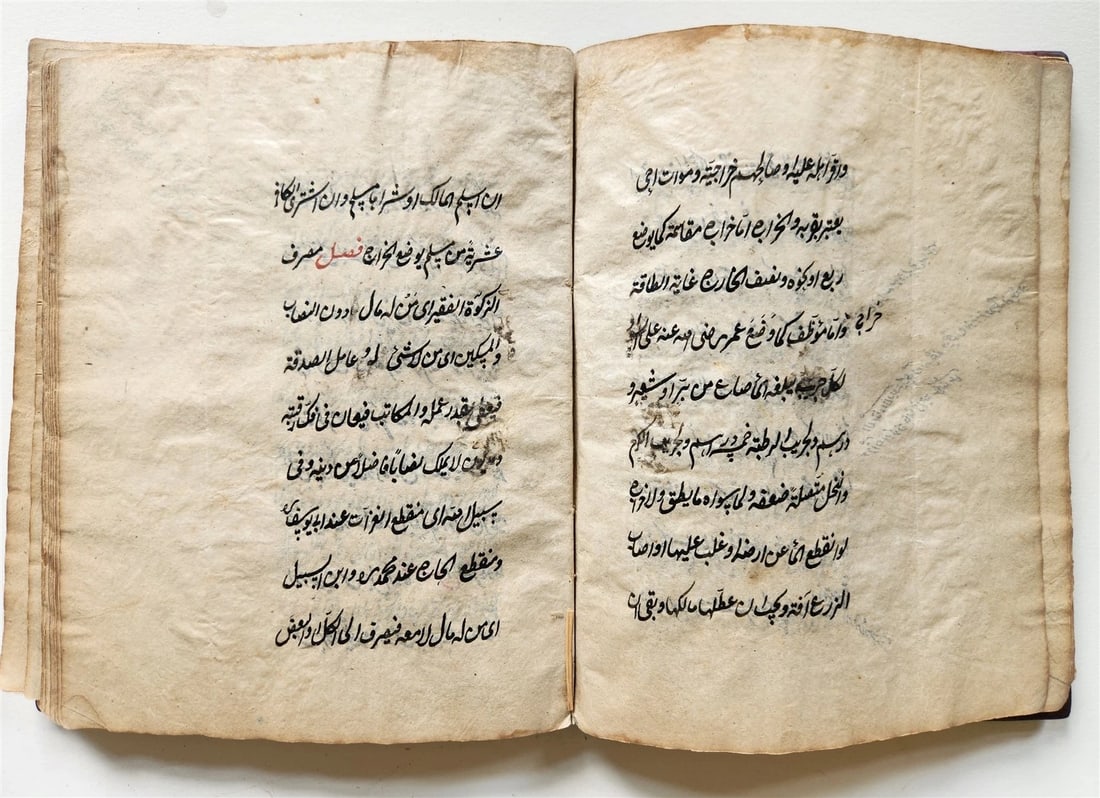 واقر اهله عليه او صالحهم خراجية وموات احي
يعتبر بقربه والخراج اما خراج مقاسمة كما يوضع
ربع او نحوه ونصف الخارج غاية الطاقة
خراج
واما موظف كما وضع عمر رضي الله عنه على
لكل جريب يبلغه الماء صاع من بر او شعير و
درهم ولجريب الرطبة خمسة دراهم ولجريب الكرم
والنخل متصلة ضعفه ولما سواه ما يطيق ولا خراج
لو انقطع الماء عن ارضه او غلب عليها او اصاب
الزرع آفة ويجب ان عطلها مالكها وبقى ان
ان اسلم المالك او شراها مسلم وان اشترى الكافر
عشرية من مسلم يوضع الخراج فصل مصرف
الزكوة الفقير اى من له مال دون النصاب
والمسكين اى من لا شئ له وعامل الصدقة
فيعطى بقدر عمله والمكاتب فيعان في فك رقبته
ومديون لا يملك نصابا فاضلا من دينه وفى
سبيل الله اى منقطع الغزات عند ابى يوسف
ومنقطع الحاج عند محمد وابن السبيل
اى من له مال لا معه فيصرف الى الكل او البعض